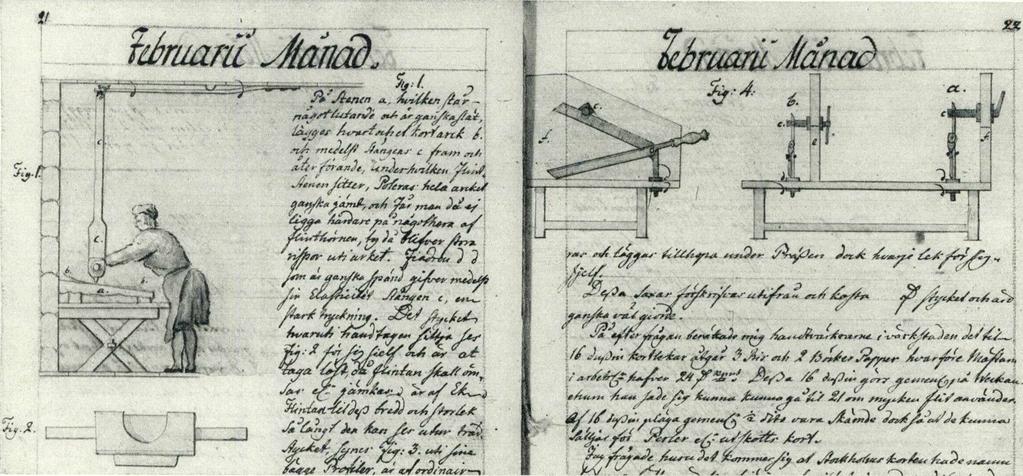 21
Februarii Månad.
Fig: 1.
På Stenen a, hvilken står
något lutande och är ganska slät,
lägges hvart uhel kortarck b.
och medelst Stångens c fram och
åter förande, under hvilken flint
Stenen sitter, Poleras hela arcket
ganska jämt, och får man då ej
ligga hårdare på någothera af
flinthörnen, ty då blifver stora
rispor uti arket. Fjädren d d
som är ganska spänd gifver medelst
sin Elasticitet Stången c, en
stark tryckning. Det stycket
hvaruti handtagen sitja ses
Fig: 2 för sig sielf och är at
taga löst då flintan skall om-
sar är af Ek
Flintan til dess bredd och storlek
Så långt den kan ses utur träd
stycket, synes Fig: 3. uti sine
bägge Profiler, är af ordinair
Fig. 1.
c.
c.
b.
a.
Fig. 2.
22
Februarii Månad
Fig: 4:
c.
f.
b.
c.
e
a.
c.
f.
ras och läggas tillhopa under Prässen dock hvarje lek för sig
sjelf.
Dessa Saxar förskrifvas utifrån och kosta stycket och äro
ganska väl giorde.
På efter frågan berättade mig handtvärkarne i värkstaden det til
16 dussin kortlekar åtgår 3 Ris och 2 Böcker Papper hvarföre Mästaren
i arbets hafver 24 Dessa 16 dussin görs gement på Weckan
ehuru han sade sig kunna kunna gå til 21 om mycken flit användes.
Af 16 dussin pläga gement 1/2 dito vara Skämde dock så at de kunna
Säljas för utskotts kort.
Jag frågade huru det kommer sig at Stockholms korten hade namn